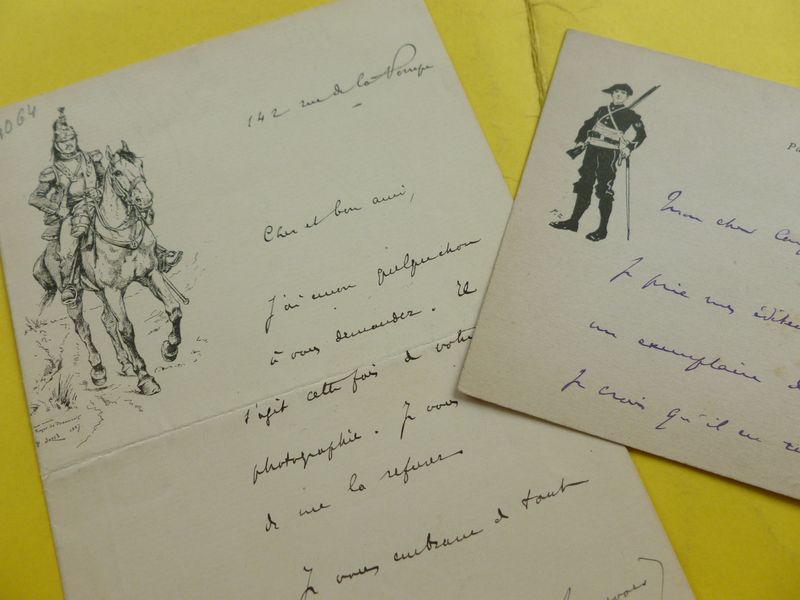 4064
142 rue de la Pompe
Cher et bon ami,
J'ai encore quelque chose
à vous demander. Il
s'agit cette fois de votre
photographie. Je vous
de me la refuser
Je vous embrasse de tout
Mon cher
Je prie mes
un exemplaire
Je crois qu'il en